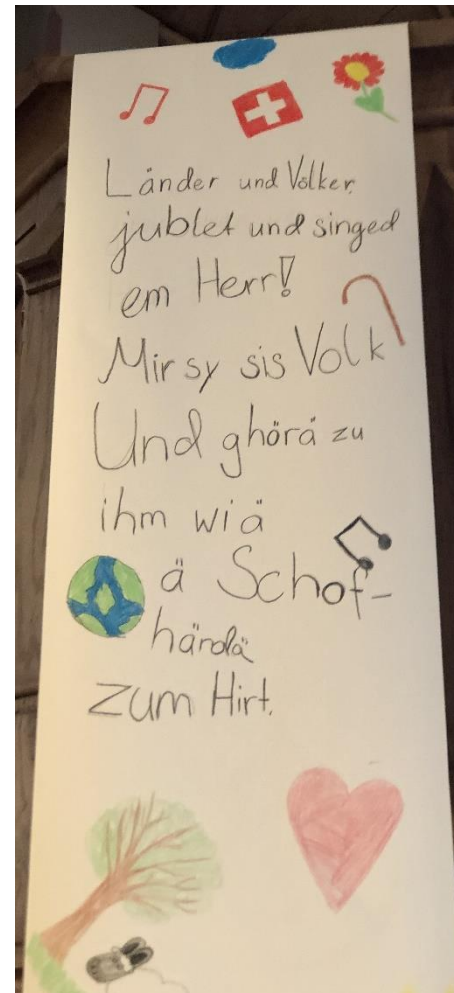 Länder und Völker,
jublet und singed
em Herr!
Mir sy sis Volk
Und ghörä zu
ihm wiä
ä Schof-
härdä
zum Hirt.